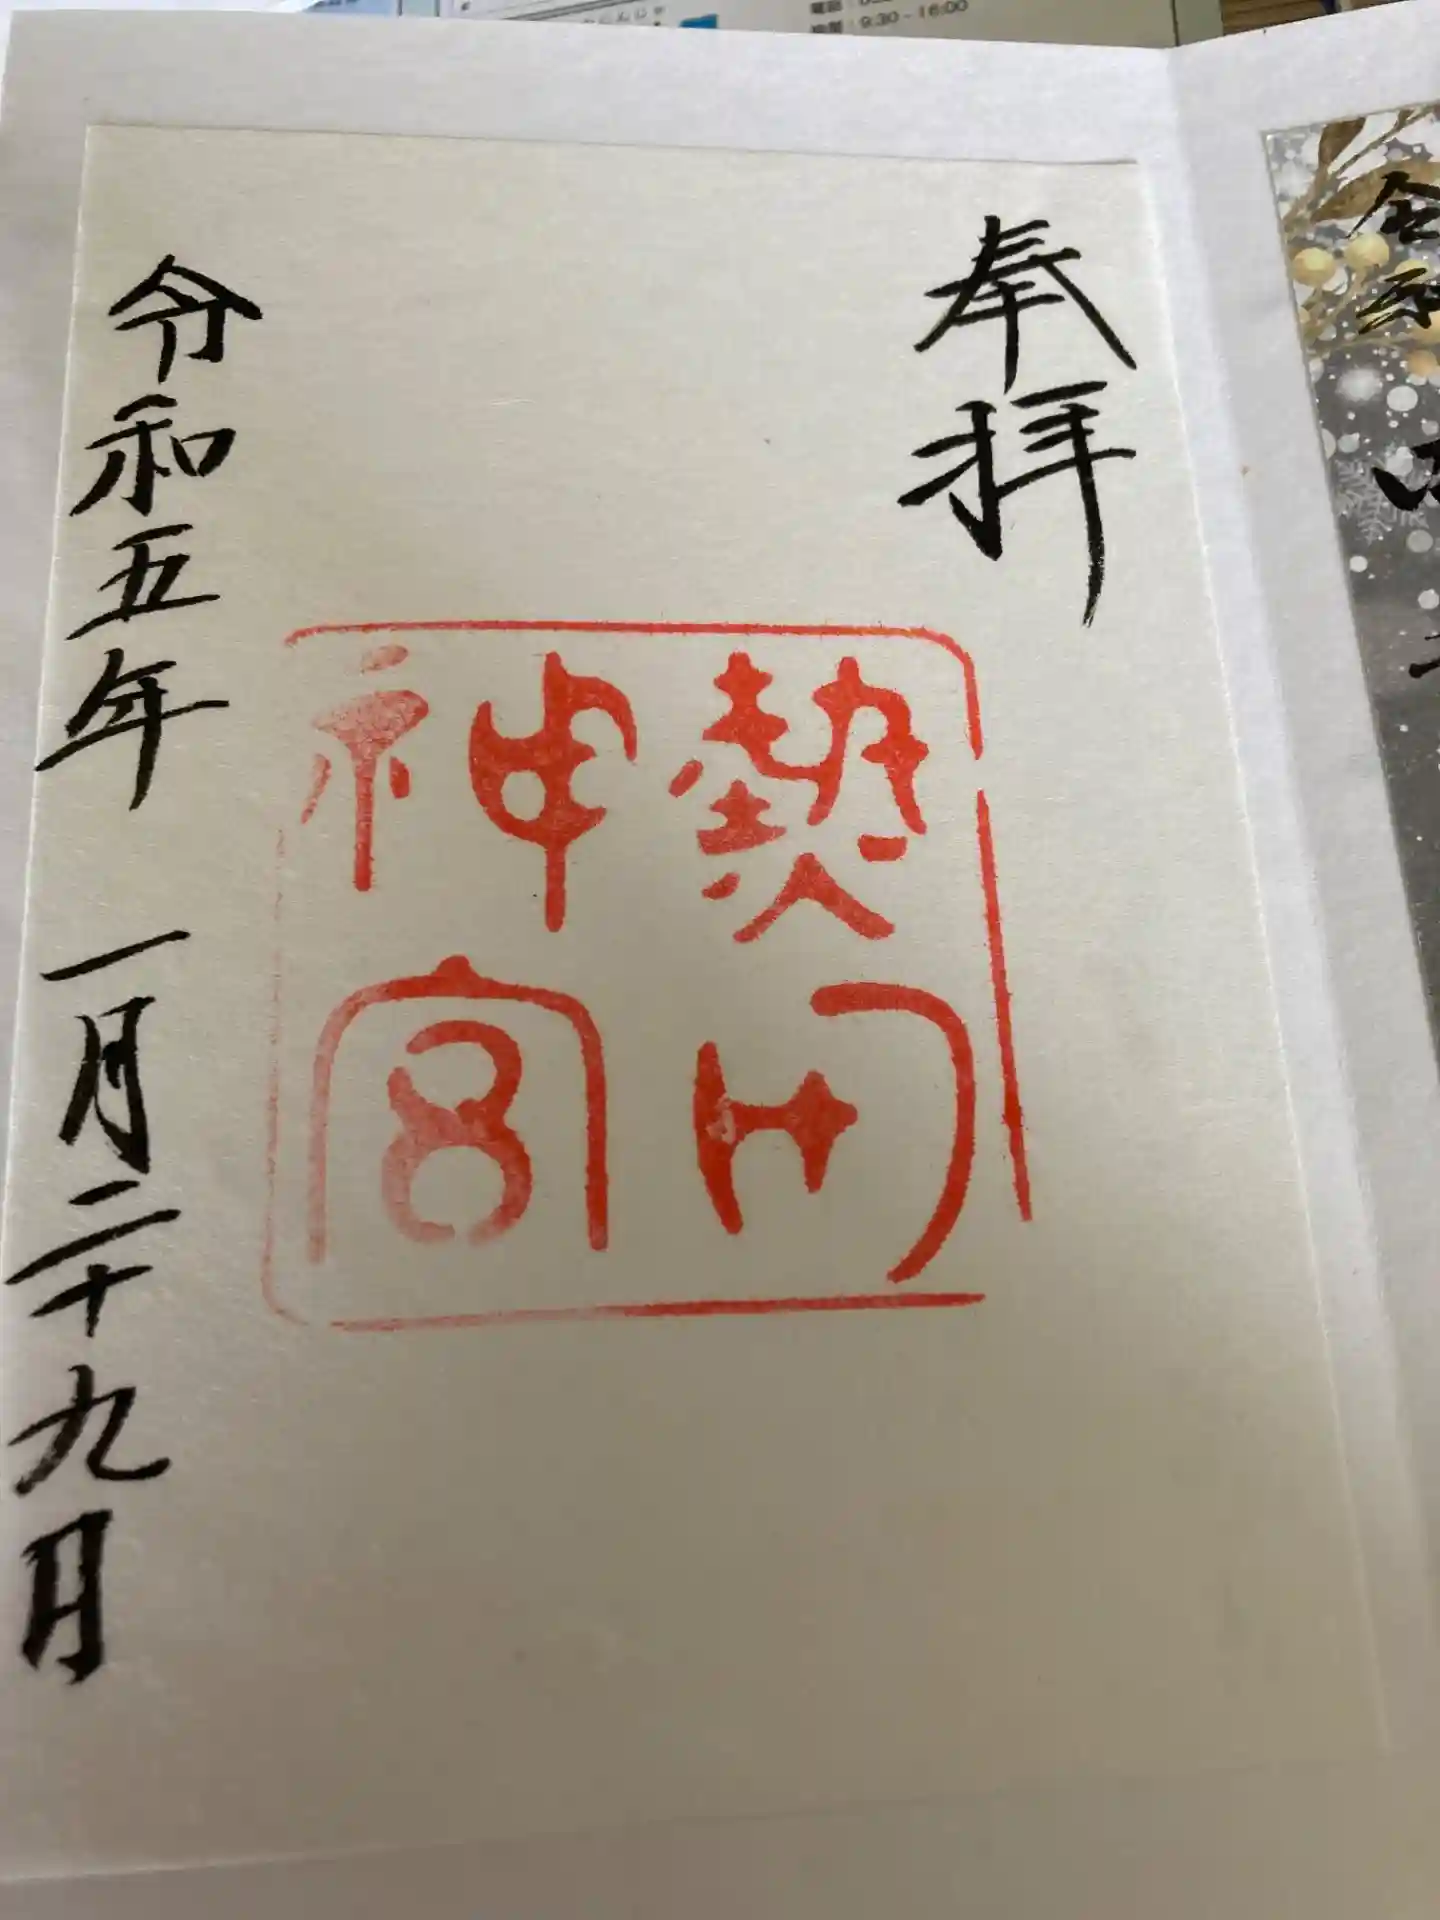 奉拝
熱田
神宮
令和五年 一月二十九日
9:30-16:00